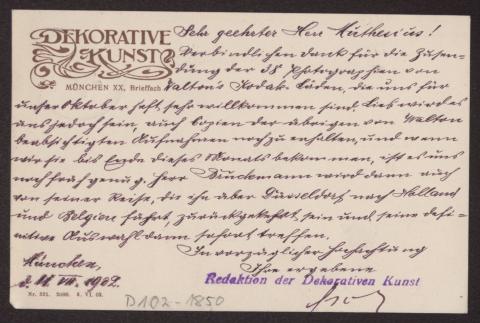 DEKORATIVE
KUNST
MÜNCHEN XX, Brieffach
Sehr geehrter Herr Muthesius!
Verbindlichen Dank für die Zusen-
dung der 38 Photographien von
Walton's Kodak-Läden, die uns für
unser Oktoberheft sehr willkommen sind. Lieb wird es
uns jedoch sein, auch Copien der übrigen von Walton
beabsichtigten Aufnahmen noch zu erhalten, und wenn
wir sie bis Ende dieses Monats bekommen, ist es uns
noch früh genug. Herr Bruckmann wird dann auch
von seiner Reise, die ihn über Düsseldorf nach Holland
und Belgien führt, zurückgekehrt sein und seine defi-
nitive Auswahl dann sofort treffen.
In vorzüglicher Hochachtung
Ihre ergebene
München,
d. 11. VIII. 1902.
Redaktion der Dekorativen Kunst
Nr. 321. 2000. 6. VI. 02.
D102-1850